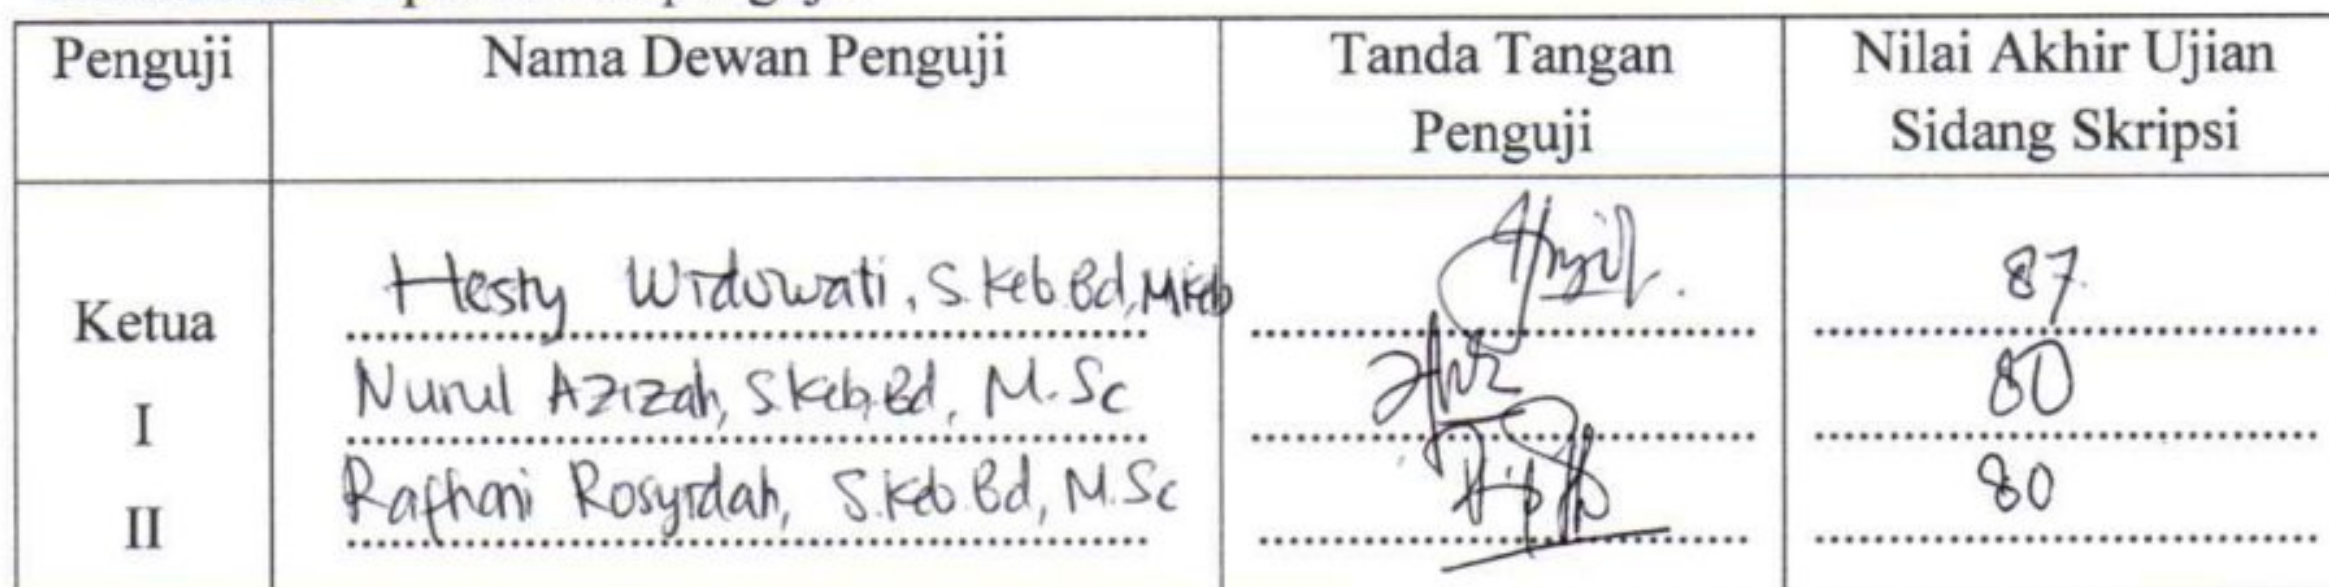 Penguji Nama Dewan Penguji Tanda Tangan Penguji Nilai Akhir Ujian Sidang Skripsi
Ketua Hesty Widowati, S.Keb.Bd, M.Keb 87
I Nurul Azizah, S.Keb.Bd, M.Sc 80
II Rafhani Rosyidah, S.Keb.Bd, M.Sc 80